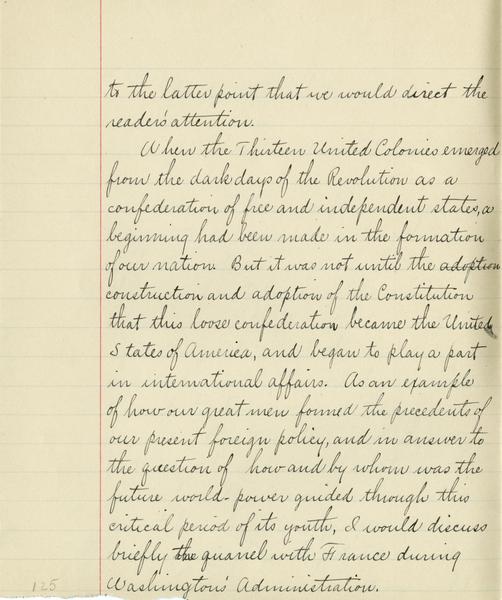 to the latter point that we would direct the
reader's attention.
When the Thirteen United Colonies emerged
from the dark days of the Revolution as a
confederation of free and independent states, a
beginning had been made in the formation
of our nation. But it was not until the adoption
construction and adoption of the Constitution
that this loose confederation became the United
States of America, and began to play a part
in international affairs. As an example
of how our great men formed the precedents of
our present foreign policy, and in answer to
the question of how and by whom was the
future world-power guided through this
critical period of its youth, I would discuss
briefly the quarrel with France during
Washington's Administration.
125